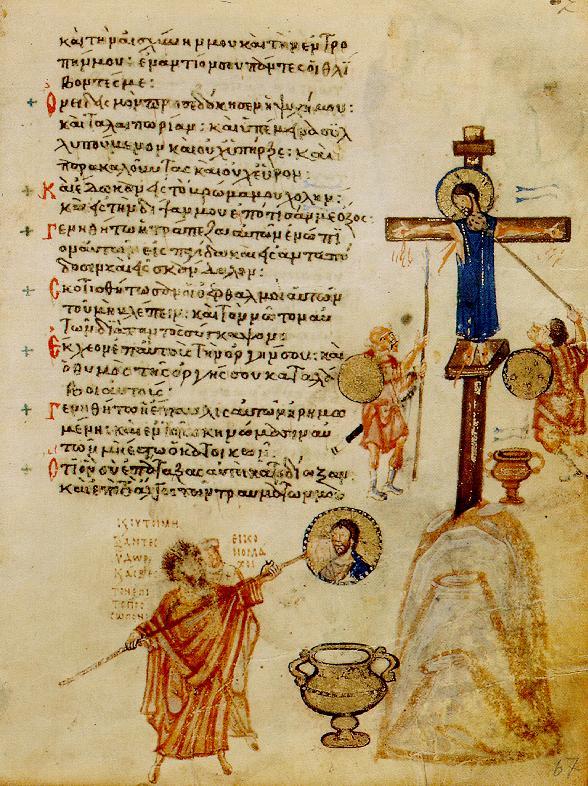 καὶ τὴν αἰσχύνην μου καὶ τὴν ἐντρο
πήν μου: ἐναντίον σου πάντες οἱ θλί
βοντές με:
Ὀνειδισμὸν προσεδόκησεν ἡ ψυχή μου:
καὶ ταλαιπωρίαν: καὶ ὑπέμεινα συλ
λυπούμενον καὶ οὐχ ὑπῆρξε: καὶ
παρακαλοῦντας καὶ οὐχ εὗρον:
Καὶ ἔδωκαν εἰς τὸ βρῶμά μου χολήν:
καὶ εἰς τὴν δίψαν μου ἐπότισάν με ὄξος:
Γενηθήτω ἡ τράπεζα αὐτῶν ἐνώπι
ον αὐτῶν εἰς παγίδα καὶ εἰς ἀνταπό
δοσιν καὶ εἰς σκάνδαλον:
Σκοτισθήτωσαν οἱ ὀφθαλμοὶ αὐτῶν
τοῦ μὴ βλέπειν: καὶ τὸν νῶτον αὐ
τῶν διὰ παντὸς σύγκαμψον:
Ἔκχεον ἐπ' αὐτοὺς τὴν ὀργήν σου: καὶ
ὁ θυμὸς τῆς ὀργῆς σου καταλά
βοι αὐτούς:
Γενηθήτω ἡ ἔπαυλις αὐτῶν ἠρημω
μένη: καὶ ἐν τοῖς σκηνώμασιν αὐ
τῶν μὴ ἔστω ὁ κατοικῶν:
Ὅτι ὃν σὺ ἐπάταξας αὐτοὶ κατεδίωξαν
καὶ ἐπὶ τὸ ἄλγος τῶν τραυμάτων μου
ΞΑΝΤΕΣ
ΥΔΩΡ
ΕΙΚΟ
ΝΟΜΑ
ΧΟΙ
67